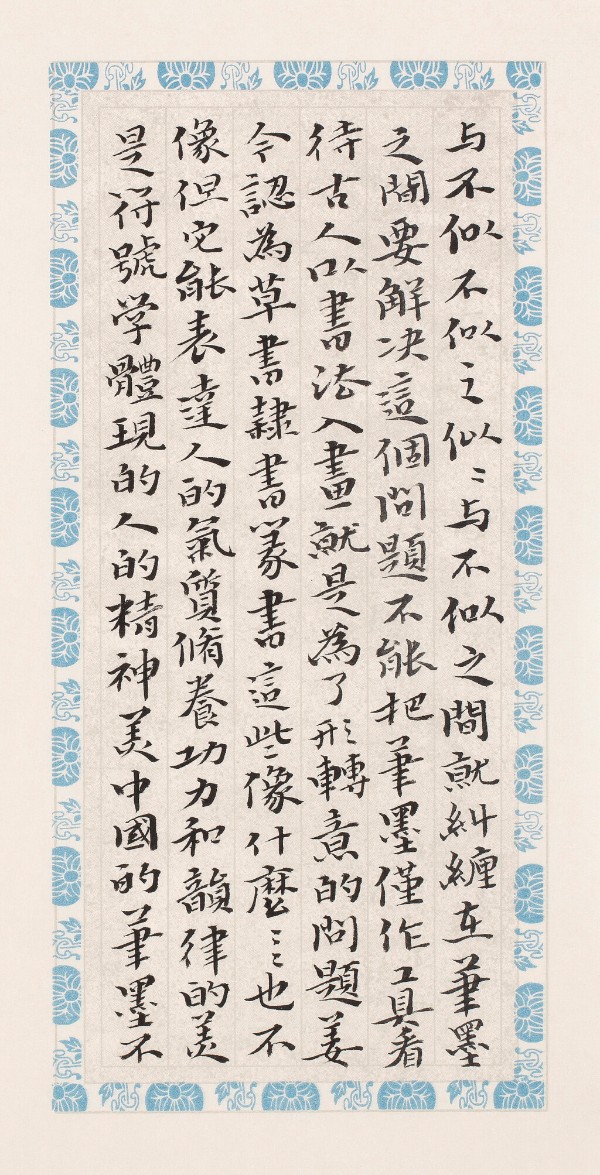 与不似不似之似〻与不似之間就糾纏在筆墨
之間要解决這個問題不能把筆墨僅作工具看
待古人以書法入畫就是為了形轉意的問題姜
今認為草書隸書篆書這些像什麼〻〻也不
像但它能表達人的氣質脩養功力和韻律的美
是符號学體現的人的精神美中國的筆墨不